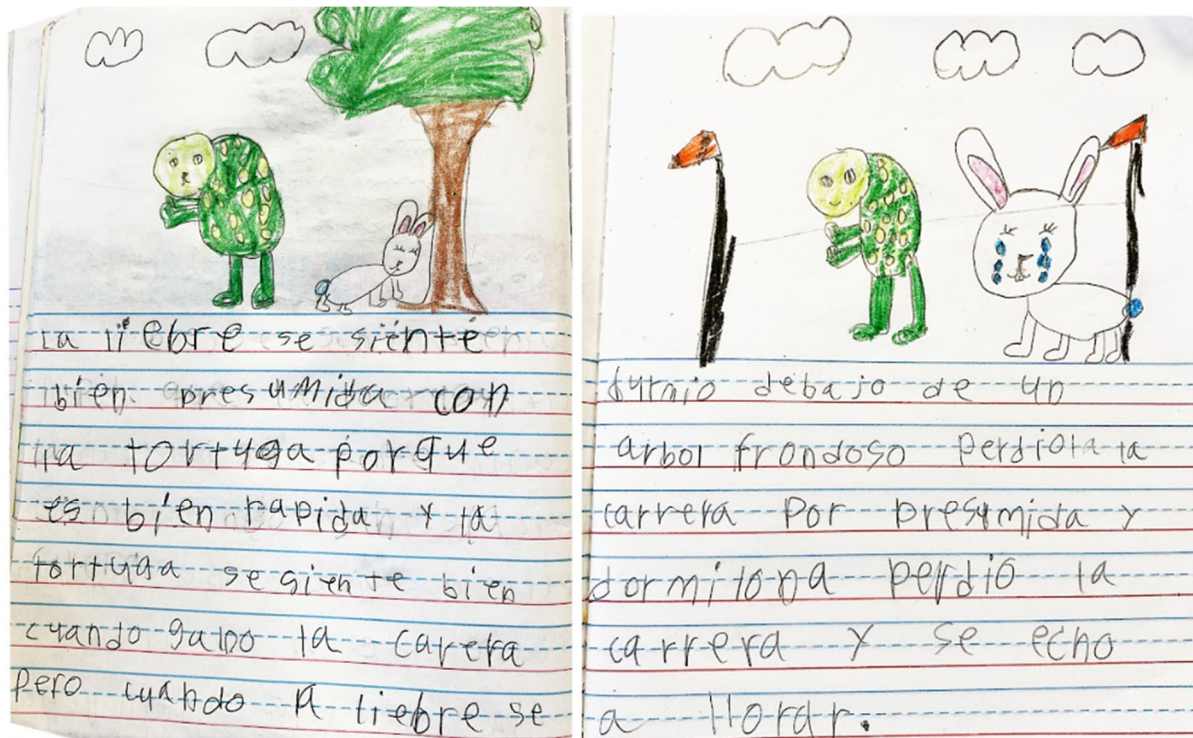 la liebre se siente
bien presumida con
la tortuga porque
es bien rapida y la
tortuga se siente bien
cuando gano la carera
pero cuando a liebre se
durmio debajo de un
arbol frondoso perdiola la
carrera por presumida y
dormilona perdio la
carrera y se echo
a llorar.